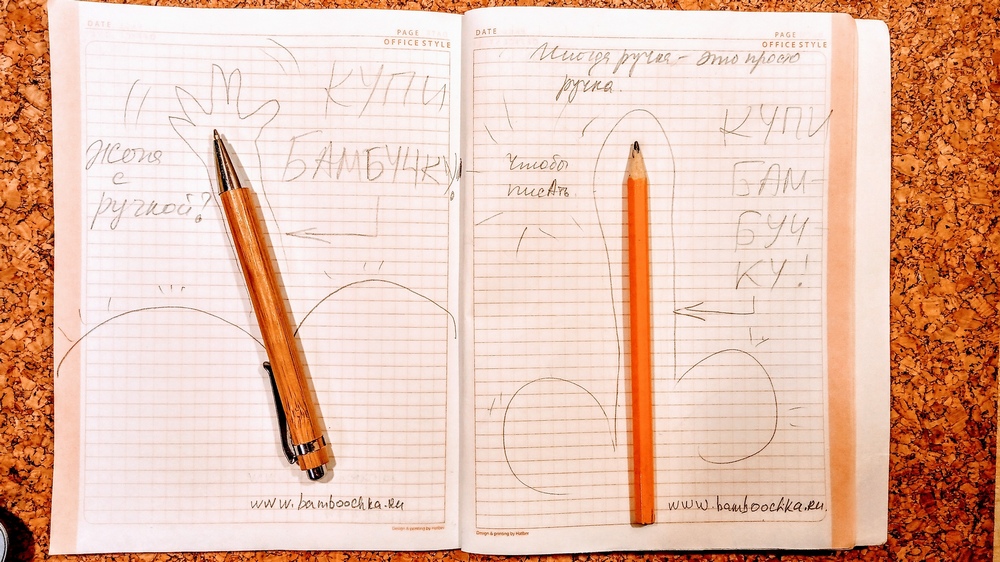 DATE
PAGE
OFFICE STYLE
КУПИ
БАМБУЧКУ!
Жопа
с
ручкой?
www.bamboochka.ru
Design & printing by Hatber
DATE
PAGE
OFFICE STYLE
Иногда ручка - это просто
ручка.
КУПИ
БАМ-
БУЧ-
КУ!
Чтобы
писать.
www.bamboochka.ru.
Design & printing by Hatber